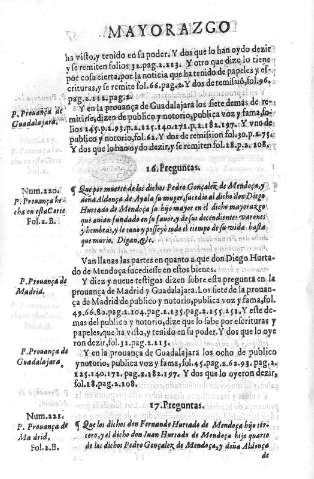 MAYORAZGO
ha visto, y tenido en su poder. Y dos que lo han oydo dezir
y se remiten folios 31. pag. 213. Y otro que dize lo tiene
por cosa cierta, por la noticia que ha tenido de papeles y es-
crituras, y se remite fol. 66. pag. 2. Y dos de remisió, fol. 96.
pag. 2. 112. pag. 2.
P. Prouança de
Guadalajara.
Y en la prouança de Guadalajara los siete demas de re-
mitirse, dizen de publico y notorio, publica voz y fama, fo-
lios 245. p. 2. 93. p. 2. 125. 140. 171. p. 2. 182. 197. Y vno de
publico y notorio, fol. 62. Y vno de remission fol. 30. p. 2. 75.
Y dos que lo han oydo dezir, y se remiten fol. 18. p. 2. 108.
16. Preguntas.
Num. 220.
P. Prouança he-
cha en esta Corte
Fol. 2. B.
¶ Que por muerte de los dichos Pedro Gonçalez de Mendoça, y de
ña Aldonça de Ayala su muger, sucedio al dicho don Diego
Hurtado de Mendoça su hijo mayor en el dicho mayorazgo
que auian fundado en su fauor, y de sus decendientes varones
y hembras, y le tuuo y posseyò todo el tiempo de su vida hasta
que murio, Digan, &c.
Van llanas las partes en quanto a que don Diego Hurta-
do de Mendoça sucediesse en estos bienes.
P. Prouança de
Madrid.
Y diez y nueue testigos dizen sobre esta pregunta en la
prouança de Madrid y Guadalajara. Los siete de la prouan-
ça de Madrid de publico y notorio, publica voz y fama, fol.
49. 66. 80. pag. 2. 104. pag. 2. 135. pag. 2. 155. 251. Y este de
mas del publico y notorio, dize que lo sabe por escrituras y
papeles, que ha visto, y tenido en su poder. Y dos que lo oye
ron dezir, fol. 31. pag. 2. 213.
P. Prouança de
Guadalajara
Y en la prouança de Guadalajara los ocho de publico
y notorio, publica voz y fama, fol. 45. pag. 2. 62. 93. pag. 2.
125. 140. 171. pag. 2. 182. 197. Y dos que lo oyeron dezir,
fol. 18. pag. 2. 108.
17. Preguntas.
Num. 221.
P. Prouança de
Madrid.
Fol. 2. B.
¶ Que los dichos don Fernando Hurtado de Mendoça hijo ter-
cero, y el dicho don Iuan Hurtado de Mendoça hijo quarto
de los dichos Pedro Gonçalez de Mendoça, y doña Aldonça
de